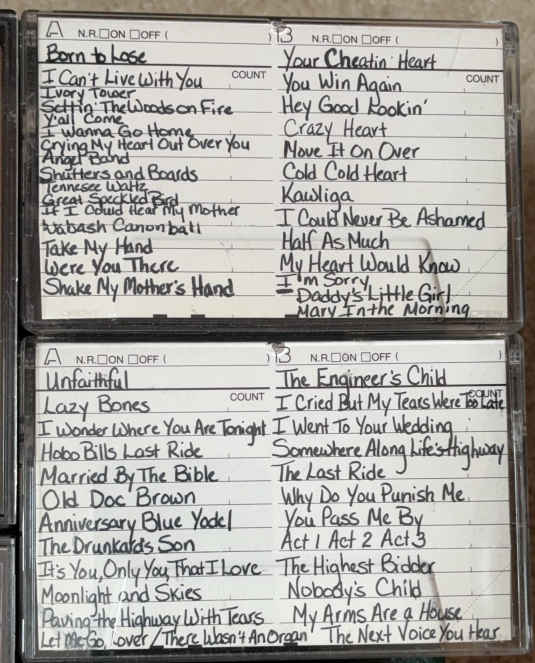 A N.R. □ON □OFF (
Born to Lose
I Can't Live With You COUNT
Ivory Tower
Settin' The Woods on Fire
Y'all Come
I Wanna Go Home
Crying My Heart Out Over You
Angel Band
Shutters and Boards
Tennesee Waltz
Great Speckled Bird
If I Could Hear My Mother
Wabash Canonball
Take My Hand
Were You There
Shake My Mother's Hand
) B N.R. □ON □OFF ( )
Your Cheatin' Heart
You Win Again COUNT
Hey Good Lookin'
Crazy Heart
Move It On Over
Cold Cold Heart
Kawliga
I Could Never Be Ashamed
Half As Much
My Heart Would Know
I'm Sorry
Daddy's Little Girl
Mary In the Morning
A N.R. □ON □OFF (
Unfaithful
Lazy Bones COUNT
I Wonder Where You Are Tonight
Hobo Bills Last Ride
Married By The Bible
Old Doc Brown
Anniversary Blue Yodel
The Drunkard's Son
It's You, Only You, That I Love
Moonlight and Skies
Paving the Highway With Tears
Let Me Go, Lover / There Wasn't An Organ
) B N.R. □ON □OFF ( )
The Engineer's Child
COUNT
I Cried But My Tears Were Too Late
I Went To Your Wedding
Somewhere Along Life's Highway
The Last Ride
Why Do You Punish Me
You Pass Me By
Act 1 Act 2 Act 3
The Highest Bidder
Nobody's Child
My Arms Are a House
The Next Voice You Hear